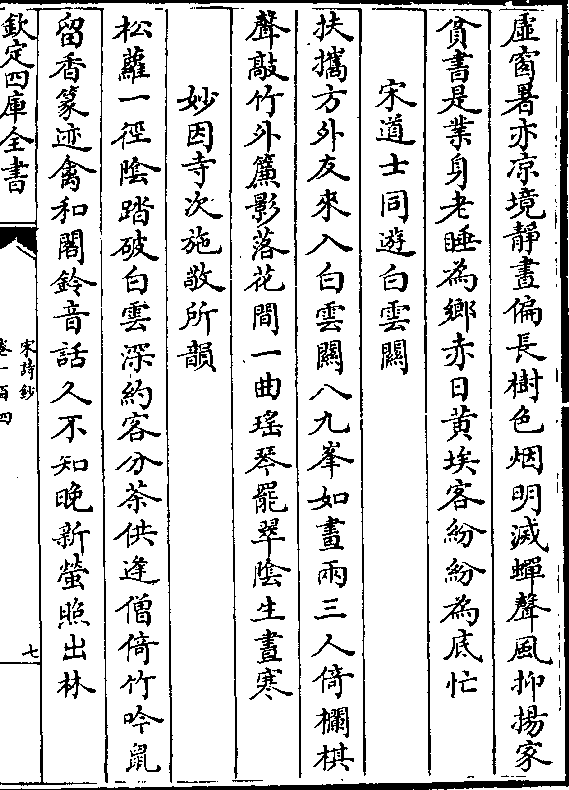 虛窗暑亦凉境靜晝偏長樹色烟明滅蟬聲風抑揚家
貧書是業身老睡為鄉赤日黄埃客紛紛為底忙
宋道士同遊白雲關
扶攜方外友來入白雲關八九峯如畫兩三人倚欄棋
聲敲竹外簾影落花間一曲瑤琴罷翠陰生晝寒
妙因寺次施敬所韻
松蘿一徑陰踏破白雲深約客分茶供逢僧倚竹吟鼠
留香篆迹禽和閣鈴音話久不知晚新螢照出林
欽定四庫全書
宋詩鈔
卷一百四
七